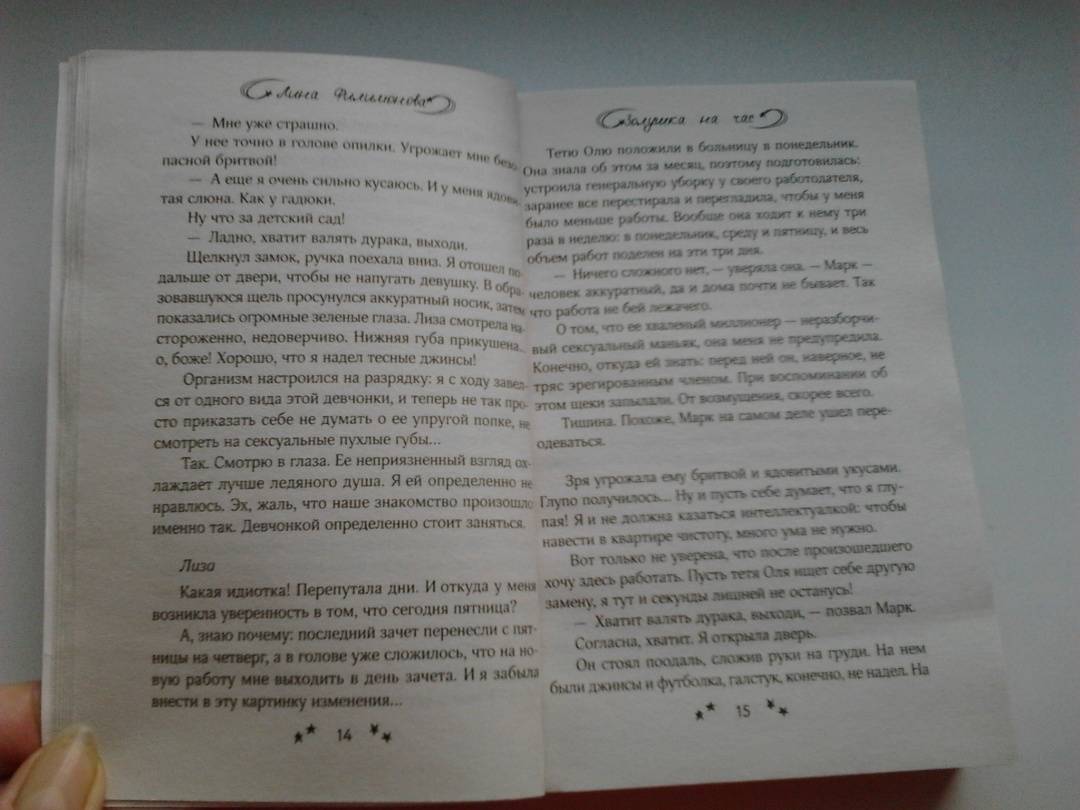 Лина Филимонова
— Мне уже страшно.
У нее точно в голове опилки. Угрожает мне безо-
пасной бритвой!
— А еще я очень сильно кусаюсь. И у меня ядови-
тая слюна. Как у гадюки.
Ну что за детский сад!
— Ладно, хватит валять дурака, выходи.
Щелкнул замок, ручка поехала вниз. Я отошел по-
дальше от двери, чтобы не напугать девушку. В обра-
зовавшуюся щель просунулся аккуратный носик, затем
показались огромные зеленые глаза. Лиза смотрела на-
стороженно, недоверчиво. Нижняя губа прикушена...
о, боже! Хорошо, что я надел тесные джинсы!
Организм настроился на разрядку: я с ходу завел-
ся от одного вида этой девчонки, и теперь не так про-
сто приказать себе не думать о ее упругой попке, не
смотреть на сексуальные пухлые губы...
Так. Смотрю в глаза. Ее неприязненный взгляд ох-
лаждает лучше ледяного душа. Я ей определенно не
нравлюсь. Эх, жаль, что наше знакомство произошло
именно так. Девчонкой определенно стоит заняться.
Лиза
Какая идиотка! Перепутала дни. И откуда у меня
возникла уверенность в том, что сегодня пятница?
А, знаю почему: последний зачет перенесли с пят-
ницы на четверг, а в голове уже сложилось, что на но-
вую работу мне выходить в день зачета. И я забыла
внести в эту картинку изменения...
14
Золушка на час
Тетю Олю положили в больницу в понедельник.
Она знала об этом за месяц, поэтому подготовилась:
устроила генеральную уборку у своего работодателя,
заранее все перестирала и перегладила, чтобы у меня
было меньше работы. Вообще она ходит к нему три
раза в неделю: в понедельник, среду и пятницу, и весь
объем работ поделен на эти три дня.
— Ничего сложного нет, — уверяла она. — Марк —
человек аккуратный, да и дома почти не бывает. Так
что работа не бей лежачего.
О том, что ее хваленый миллионер — неразборчи-
вый сексуальный маньяк, она меня не предупредила.
Конечно, откуда ей знать: перед ней он, наверное, не
тряс эрегированным членом. При воспоминании об
этом щеки запылали. От возмущения, скорее всего.
Тишина. Похоже, Марк на самом деле ушел пере-
одеваться.
Зря угрожала ему бритвой и ядовитыми укусами.
Глупо получилось... Ну и пусть себе думает, что я глу-
пая! Я и не должна казаться интеллектуалкой: чтобы
навести в квартире чистоту, много ума не нужно.
Вот только не уверена, что после произошедшего
хочу здесь работать. Пусть тетя Оля ищет себе другую
замену, я тут и секунды лишней не останусь!
— Хватит валять дурака, выходи, — позвал Марк.
Согласна, хватит. Я открыла дверь.
Он стоял поодаль, сложив руки на груди. На нем
были джинсы и футболка, галстук, конечно, не надел. На
15